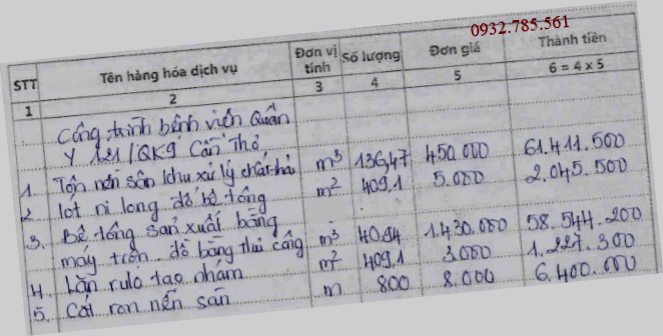 0932.785.561
STT Tên hàng hóa dịch vụ Đơn vị tính Số lượng Đơn giá Thành tiền
1 2 3 4 5 6 = 4 x 5
Công trình bệnh viện Quân
Y 121/QK9 Cần Thơ,
1 Tôn nền sân khu xử lý chất thải m³ 136,47 450.000 61.411.500
2 lót ni long đổ bê tông m² 409,1 5.000 2.045.500
3. Bê tông sản xuất bằng
máy trộn đổ bằng thủ công m³ 40.94 1.430.000 58.544.200
4. Lăn rulo tạo nhám m² 409,1 3.000 1.227.300
5. Cắt ron nền sân m 800 8.000 6.400.000